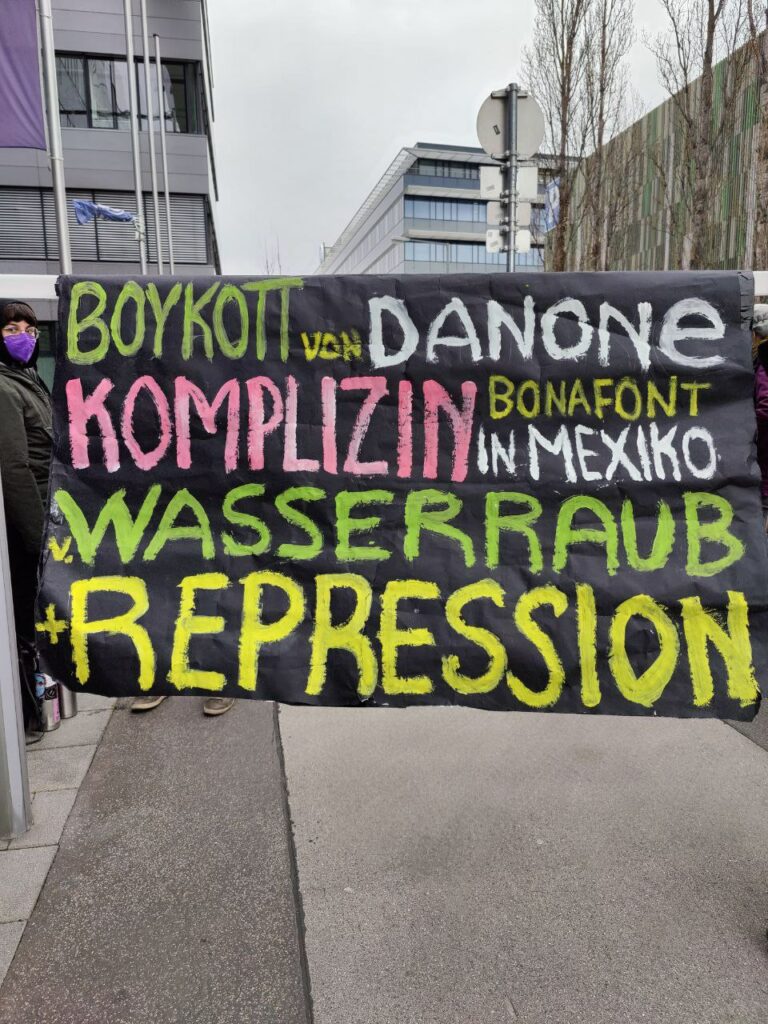 BOYKOTT VON DANONE
KOMPLIZIN BONAFONT
IN MEXIKO
v. WASSERRAUB
+ REPRESSION